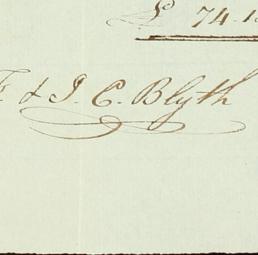 £ 74.1
& J. C. Blyth